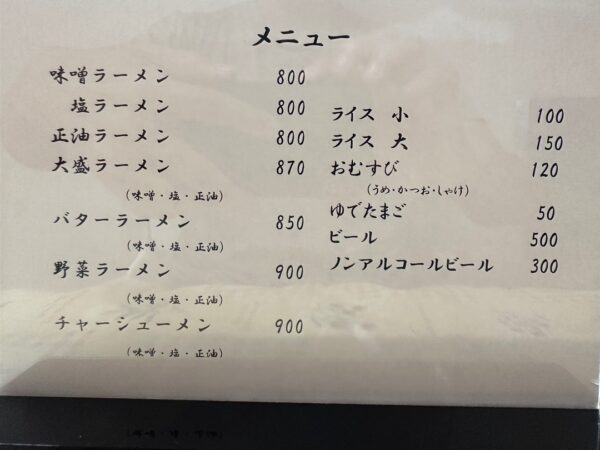 メニュー
味噌ラーメン 800
塩ラーメン 800
正油ラーメン 800
大盛ラーメン 870
(味噌・塩・正油)
バターラーメン 850
(味噌・塩・正油)
野菜ラーメン 900
(味噌・塩・正油)
チャーシューメン 900
(味噌・塩・正油)
ライス 小 100
ライス 大 150
おむすび 120
(うめ・かつお・しゃけ)
ゆでたまご 50
ビール 500
ノンアルコールビール 300